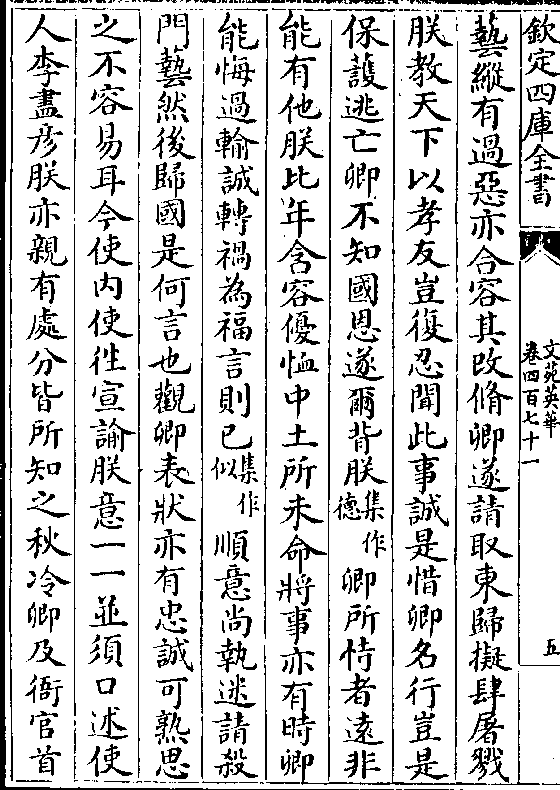 欽定四庫全書
文苑英華
卷四百七十一
五
藝縱有過惡亦合容其改脩卿遂請取東歸擬肆屠戮
朕教天下以孝友豈復忍聞此事誠是惜卿名行豈是
保護逃亡卿不知國恩遂爾背朕集作德卿所恃者遠非
能有他朕比年含容優恤中土所未命將事亦有時卿
能悔過輸誠轉禍為福言則已集作似順意尚執迷請殺
門藝然後歸國是何言也觀卿表狀亦有忠誠可熟思
之不容易耳今使内使徃宣諭朕意一一並須口述使
人李盡彦朕亦親有處分皆所知之秋冷卿及衙官首